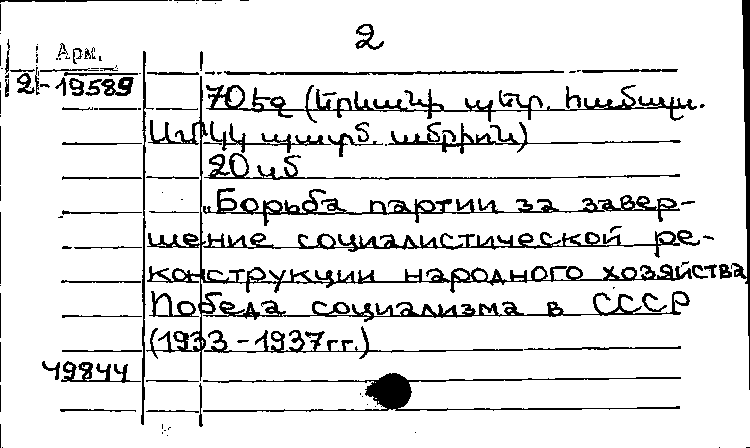 2
Арм.
2-19589
70 էջ (Երևանի պետ. համալս.
ՍՄԿԿ պատմ. ամբիոն)
20 սմ
„Борьба партии за завер-
шение социалистической ре-
конструкции народного хозяйства
Победа социализма в СССР
(1933-1937гг.)
49844